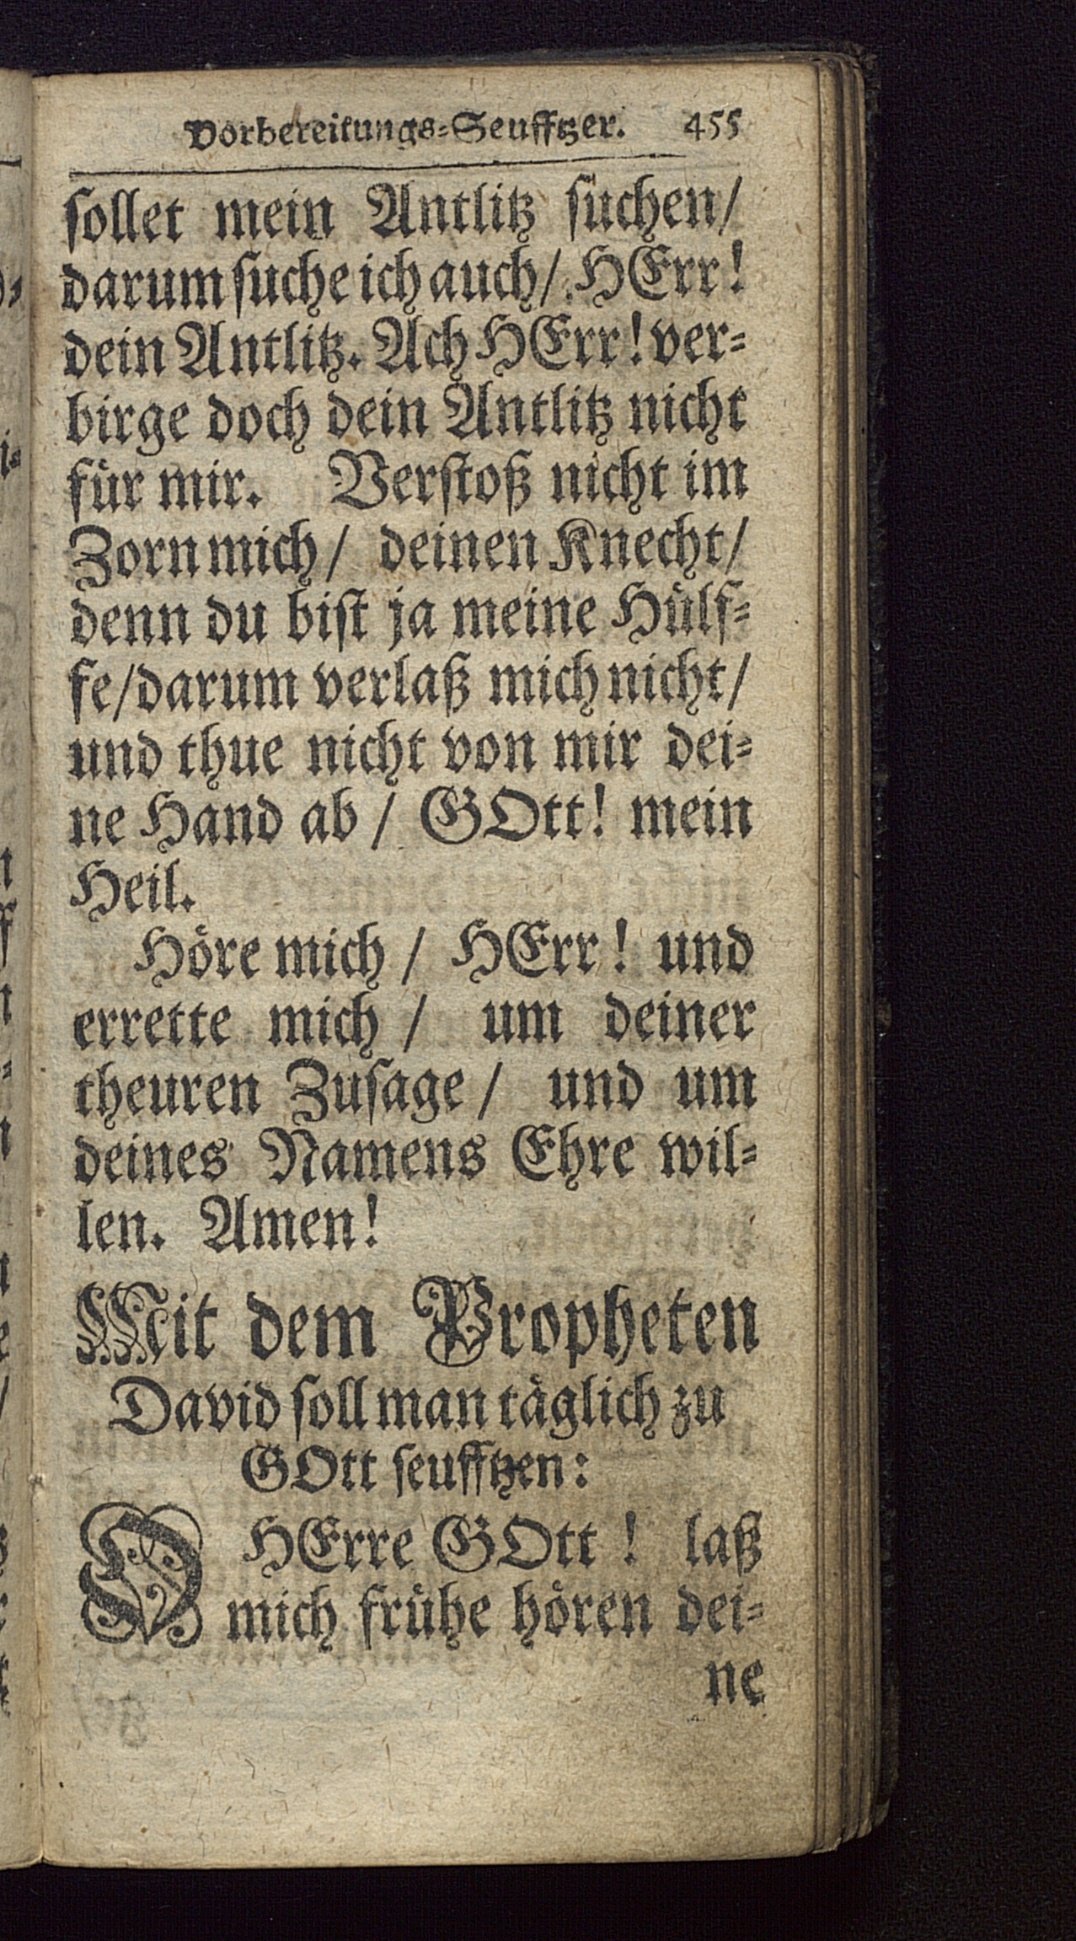 Vorbereitungs-Seufftzer. 455
sollet mein Antlitz suchen/
darum suche ich auch/ HErr!
dein Antlitz. Ach HErr! ver-
birge doch dein Antlitz nicht
für mir. Verstoß nicht im
Zorn mich/ deinen Knecht/
denn du bist ja meine Hülf-
fe/darum verlaß mich nicht/
und thue nicht von mir dei-
ne Hand ab / GOtt! mein
Heil.
Höre mich / HErr! und
errette mich / um deiner
theuren Zusage / und um
deines Namens Ehre wil-
len. Amen!
Mit dem Propheten
David soll man täglich zu
GOtt seufftzen:
O HErre GOtt ! laß
mich frühe hören dei-
ne